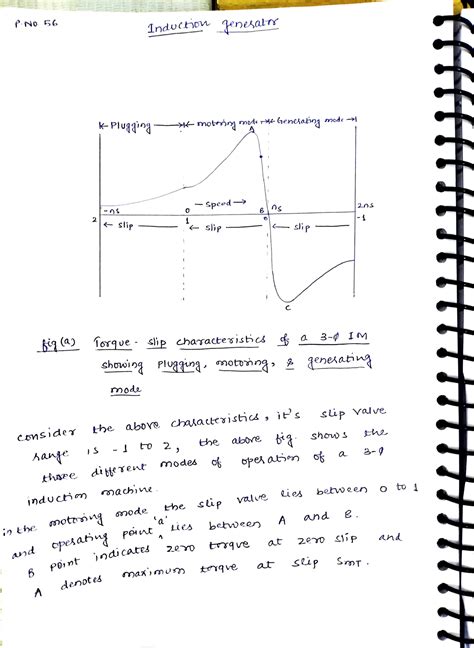 P NO 56
Induction generator
Plugging motoring mode Generating mode
A
- speed →
-ns 0 B ns 2ns
2 1 0 -1
← slip ← slip ← slip
C
fig (a) Torque - slip characteristics of a 3-φ IM
showing plugging, motoring, & generating
mode
consider the above characteristics, it's slip value
range is -1 to 2, the above fig. shows the
three different modes of operation of a 3-φ
induction machine.
in the motoring mode the slip value lies between 0 to 1
and operating point 'a' lies between A and B.
B point indicates zero torque at zero slip and
A denotes maximum torque at slip SmT.